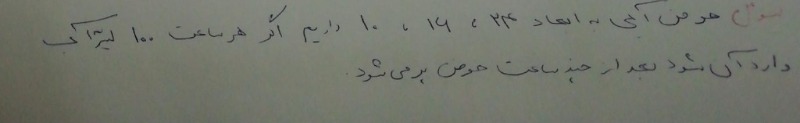 سوال حوض آبی به ابعاد ۲۴ ، ۱۶ ، ۱۰ داریم اگر هر ساعت ۱۰۰ لیتر آب
وارد آن شود بعد از چند ساعت حوض پر می شود.